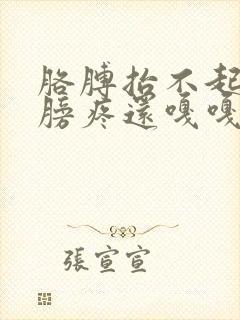 胳膊抬不起
膀疼還嘎嘎
張宣宣